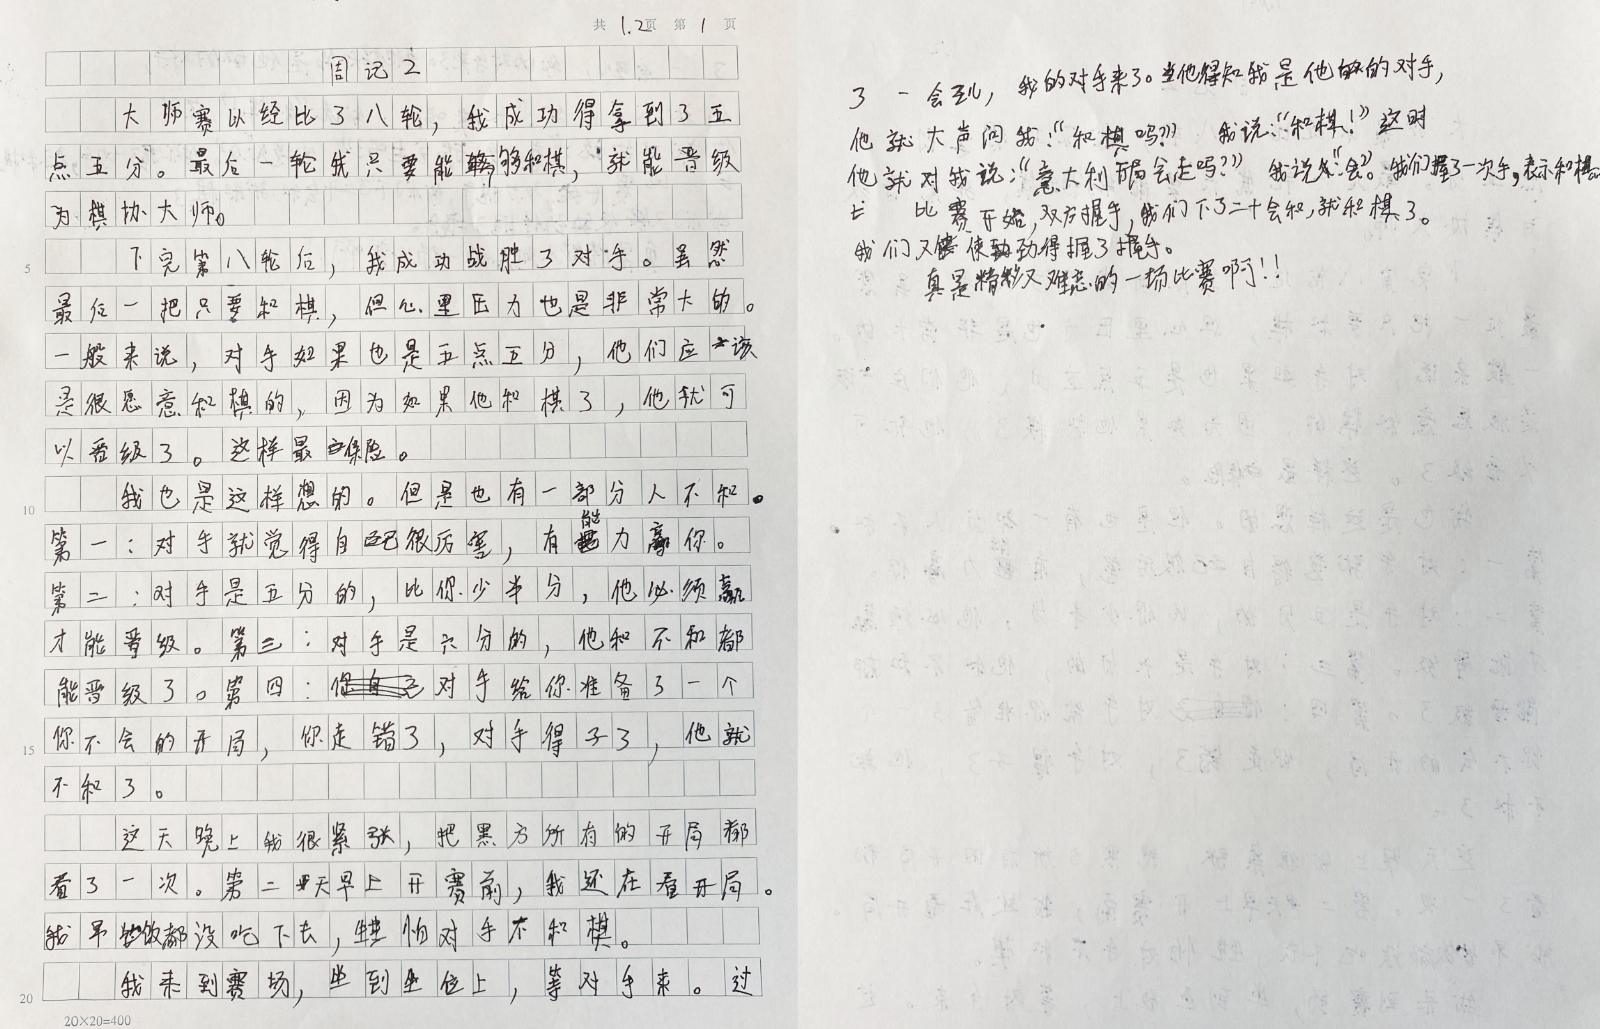 共1.2页 第1页
周记2
大师赛以经比了八轮，我成功得拿到了五
点五分。最后一轮我只要能够和棋，就能晋级
为棋协大师。
5 下完第八轮后，我成功战胜了对手。虽然
最后一把只要和棋，但心里压力也是非常大的。
一般来说，对手如果也是五点五分，他们应该
是很愿意和棋的，因为如果他和棋了，他就可
以晋级了。这样最保险。
10 我也是这样想的。但是也有一部分人不和。
第一：对手就觉得自己很厉害，有能力赢你。
第二：对手是五分的，比你少半分，他必须赢
才能晋级。第三：对手是六分的，他和不和都
能晋级了。第四：对手给你准备了一个
15 你不会的开局，你走错了，对手得子了，他就
不和了。
这天晚上我很紧张，把黑方所有的开局都
看了一次。第二天早上开赛前，我还在看开局。
我早饭都没吃下去，生怕对手不和棋。
20 我来到赛场，坐到坐位上，等对手来。过
20×20=400
了一会到，我的对手来了。当他得知我是他的对手，
他就大声问我：“和棋吗？” 我说：“和棋！”这时
他就对我说：“意大利开局会走吗？” 我说“会”。我们握了一次手，表示和棋。
比赛开始，双方握手，我们下了二十会和，就和棋了。
我们又使劲得握了握手。
真是精彩又难忘的一场比赛啊！！